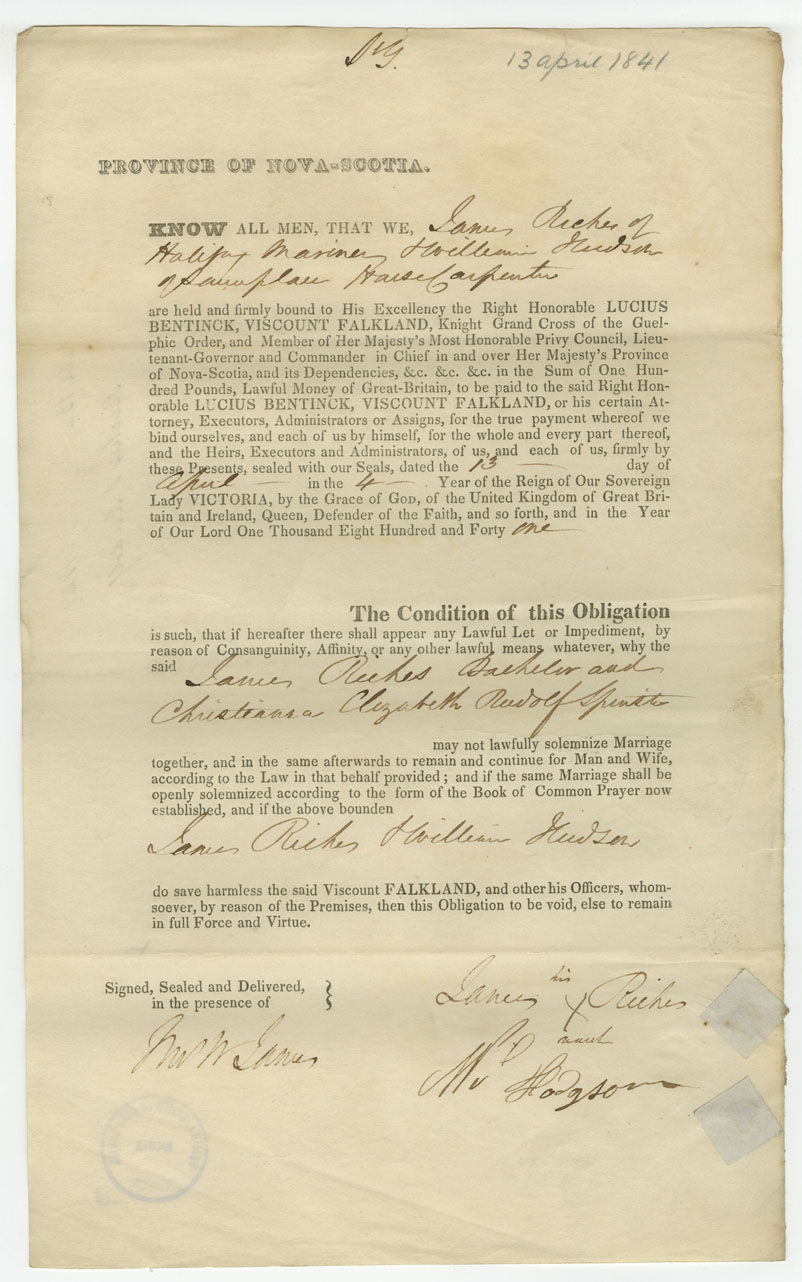 13 april 1841
PROVINCE OF NOVA-SCOTIA.
KNOW ALL MEN, THAT WE, James Riches of
Halifax Mariner & William Hudson
of Same place House Carpenter
are held and firmly bound to His Excellency the Right Honorable LUCIUS
BENTINCK, VISCOUNT FALKLAND, Knight Grand Cross of the Guel-
phic Order, and Member of Her Majesty's Most Honorable Privy Council, Lieu-
tenant-Governor and Commander in Chief in and over Her Majesty's Province
of Nova-Scotia, and its Dependencies, &c. &c. &c. in the Sum of One Hun-
dred Pounds, Lawful Money of Great-Britain, to be paid to the said Right Hon-
orable LUCIUS BENTINCK, VISCOUNT FALKLAND, or his certain At-
torney, Executors, Administrators or Assigns, for the true payment whereof we
bind ourselves, and each of us by himself, for the whole and every part thereof,
and the Heirs, Executors and Administrators, of us, and each of us, firmly by
these Presents, sealed with our Seals, dated the 13 — day of
April — in the 4 — . Year of the Reign of Our Sovereign
Lady VICTORIA, by the Grace of GOD, of the United Kingdom of Great Bri-
tain and Ireland, Queen, Defender of the Faith, and so forth, and in the Year
of Our Lord One Thousand Eight Hundred and Forty one
The Condition of this Obligation
is such, that if hereafter there shall appear any Lawful Let or Impediment, by
reason of Consanguinity, Affinity, or any other lawful means whatever, why the
said James Riches Bachelor and
Christianna Elizabeth Rudolf Spinster
may not lawfully solemnize Marriage
together, and in the same afterwards to remain and continue for Man and Wife,
according to the Law in that behalf provided; and if the same Marriage shall be
openly solemnized according to the form of the Book of Common Prayer now
established, and if the above bounden
James Riches & William Hudson
do save harmless the said Viscount FALKLAND, and other his Officers, whom-
soever, by reason of the Premises, then this Obligation to be void, else to remain
in full Force and Virtue.
Signed, Sealed and Delivered,
in the presence of
James his X Riches
mark
W James
Wm Hodgson